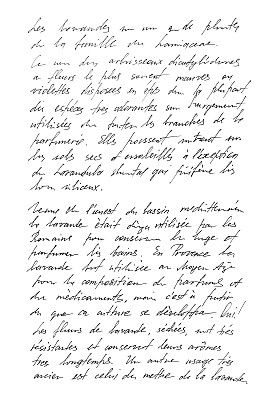 Les lavandes un g de plantes
de la famille des lamiaceae.
Ce sont des arbrisseaux dicotylédones
à fleurs le plus souvent mauves ou
violettes disposées en épis dont la plupart
des espèces très odorantes sont largement
utilisées dans toutes les branches de la
parfumerie. Elles poussent surtout sur
les sols secs et ensoleillés à l'exception
du Lavandula qui préfère les
sols siliceux.
Venue de l'ouest du bassin méditerranéen
la lavande était déjà utilisée par les
Romains pour conserver le linge et
parfumer les bains. En Provence la
lavande fut utilisée au Moyen Âge
pour la composition de parfums et
de médicaments, mais c'est à partir
du que sa culture se développa. Oui!
Les fleurs de lavande, séchées, sont très
résistantes et conservent leurs arômes
très longtemps. Un autre usage très
ancien est celui de mettre de la lavande